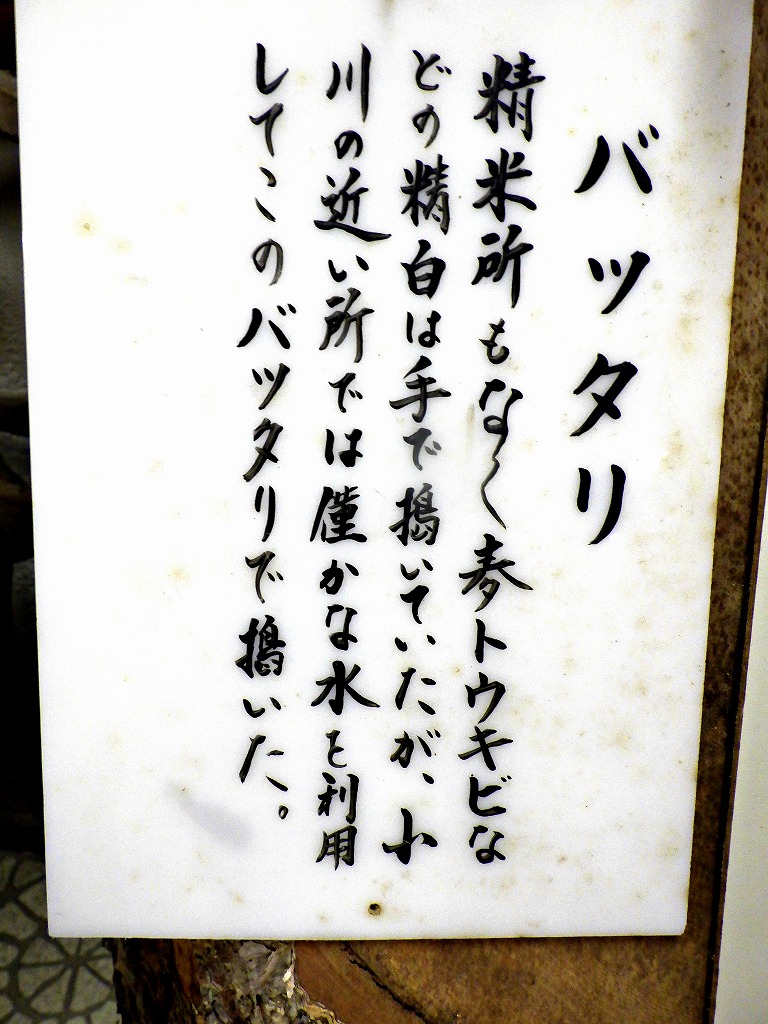 バッタリ
精米所もなく麦トウキビな
どの精白は手で搗いていたが、小
川の近い所では僅かな水を利用
してこのバッタリで搗いた。